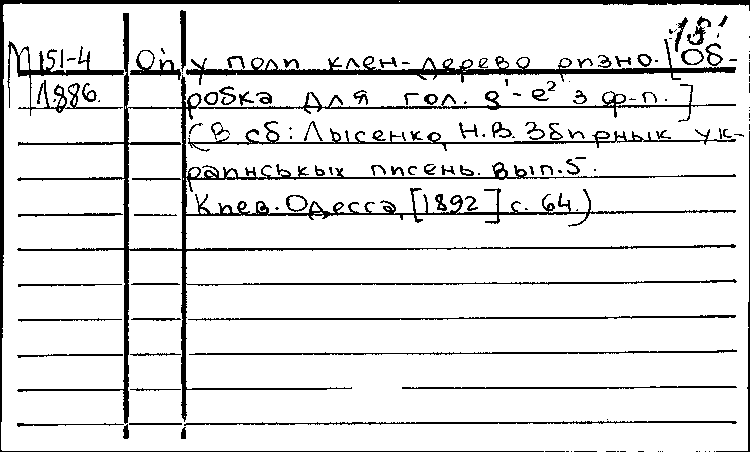 15!
М 151-4 Ой у поли клен-дерево ризно. [Об-
1886 робка для гол. g¹-e² з ф-п.]
(В сб: Лысенко, Н.В. Збирнык ук-
раинськых писень. Вып. 5.
Киев. Одесса, [1892] с. 64.)